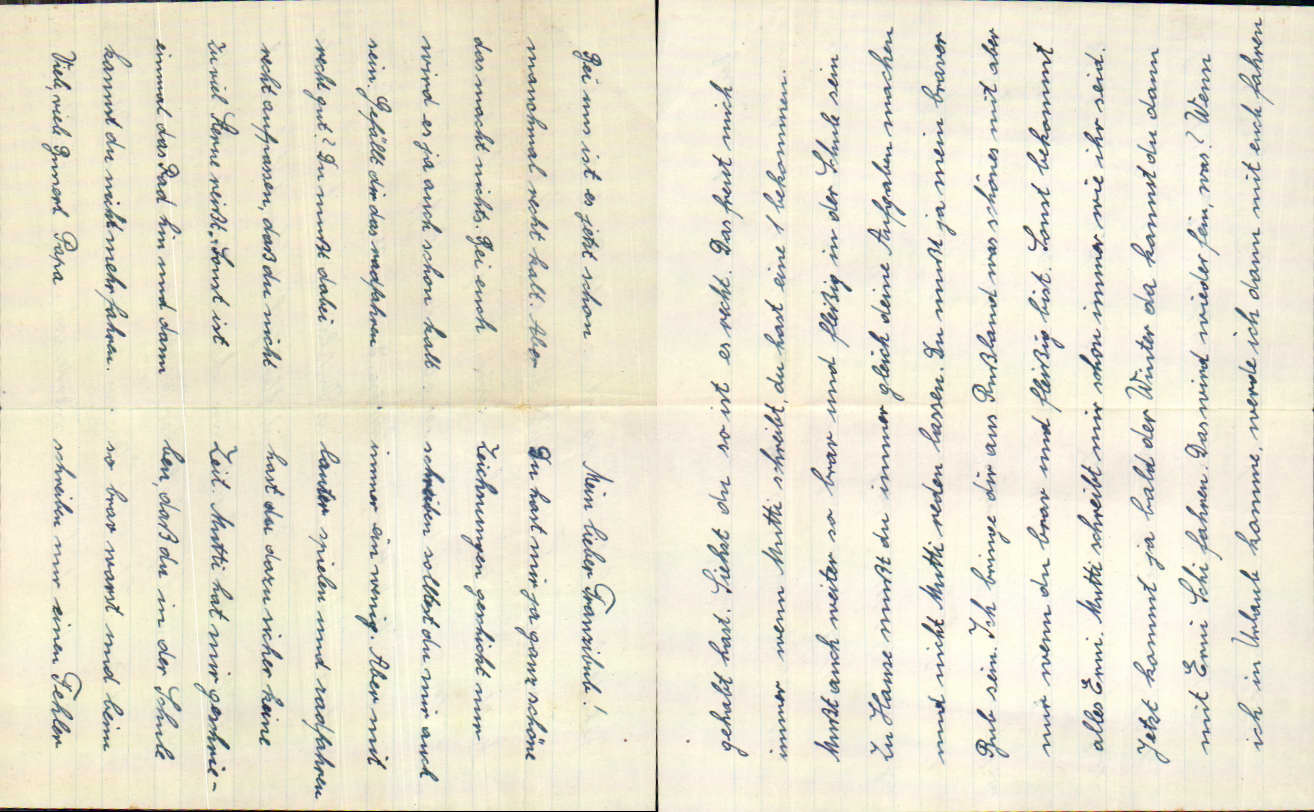 Mein lieber Franzibub!
Du hast mir ja ganz schöne
Zeichnungen geschickt nur
schreiben solltest du mir auch
immer ein wenig. Aber mit
lauter spielen und radfahren
hast du dazu sicher keine
Zeit. Mutti hat mir geschrie-
ben, daß du in der Schule
so brav warst und beim
schreiben nur einen Fehler
gehabt hast. Siehst du so ist es recht. Das freut mich
immer wenn Mutti schreibt, du hast eine 1 bekommen.
Mußt auch weiter so brav und fleißig in der Schule sein
Zu Hause mußt du immer gleich deine Aufgaben machen
und nicht Mutti reden lassen. Du mußt ja mein braver
Bub sein. Ich bringe dir aus Rußland was schönes mit aber
nur wenn du brav und fleißig bist. Sonst bekommt
alles Erni. Mutti schreibt mir schon immer wie ihr seid.
Jetzt kommt ja bald der Winter da kannst du dann
mit Erni Schi fahren. Das wird wieder fein, was? Wenn
ich in Urlaub komme, werde ich dann mit euch fahren
Bei uns ist es jetzt schon
manchmal recht kalt. Aber
das macht nichts. Bei euch
wird es ja auch schon kalt
sein. Gefällt dir das radfahren
recht gut? Du mußt dabei
recht aufpassen, daß du nicht
zu viel Sterne reißt, sonst ist
einmal das Rad hin und dann
kannst du nicht mehr fahren.
Viele, viele Busserl Papa